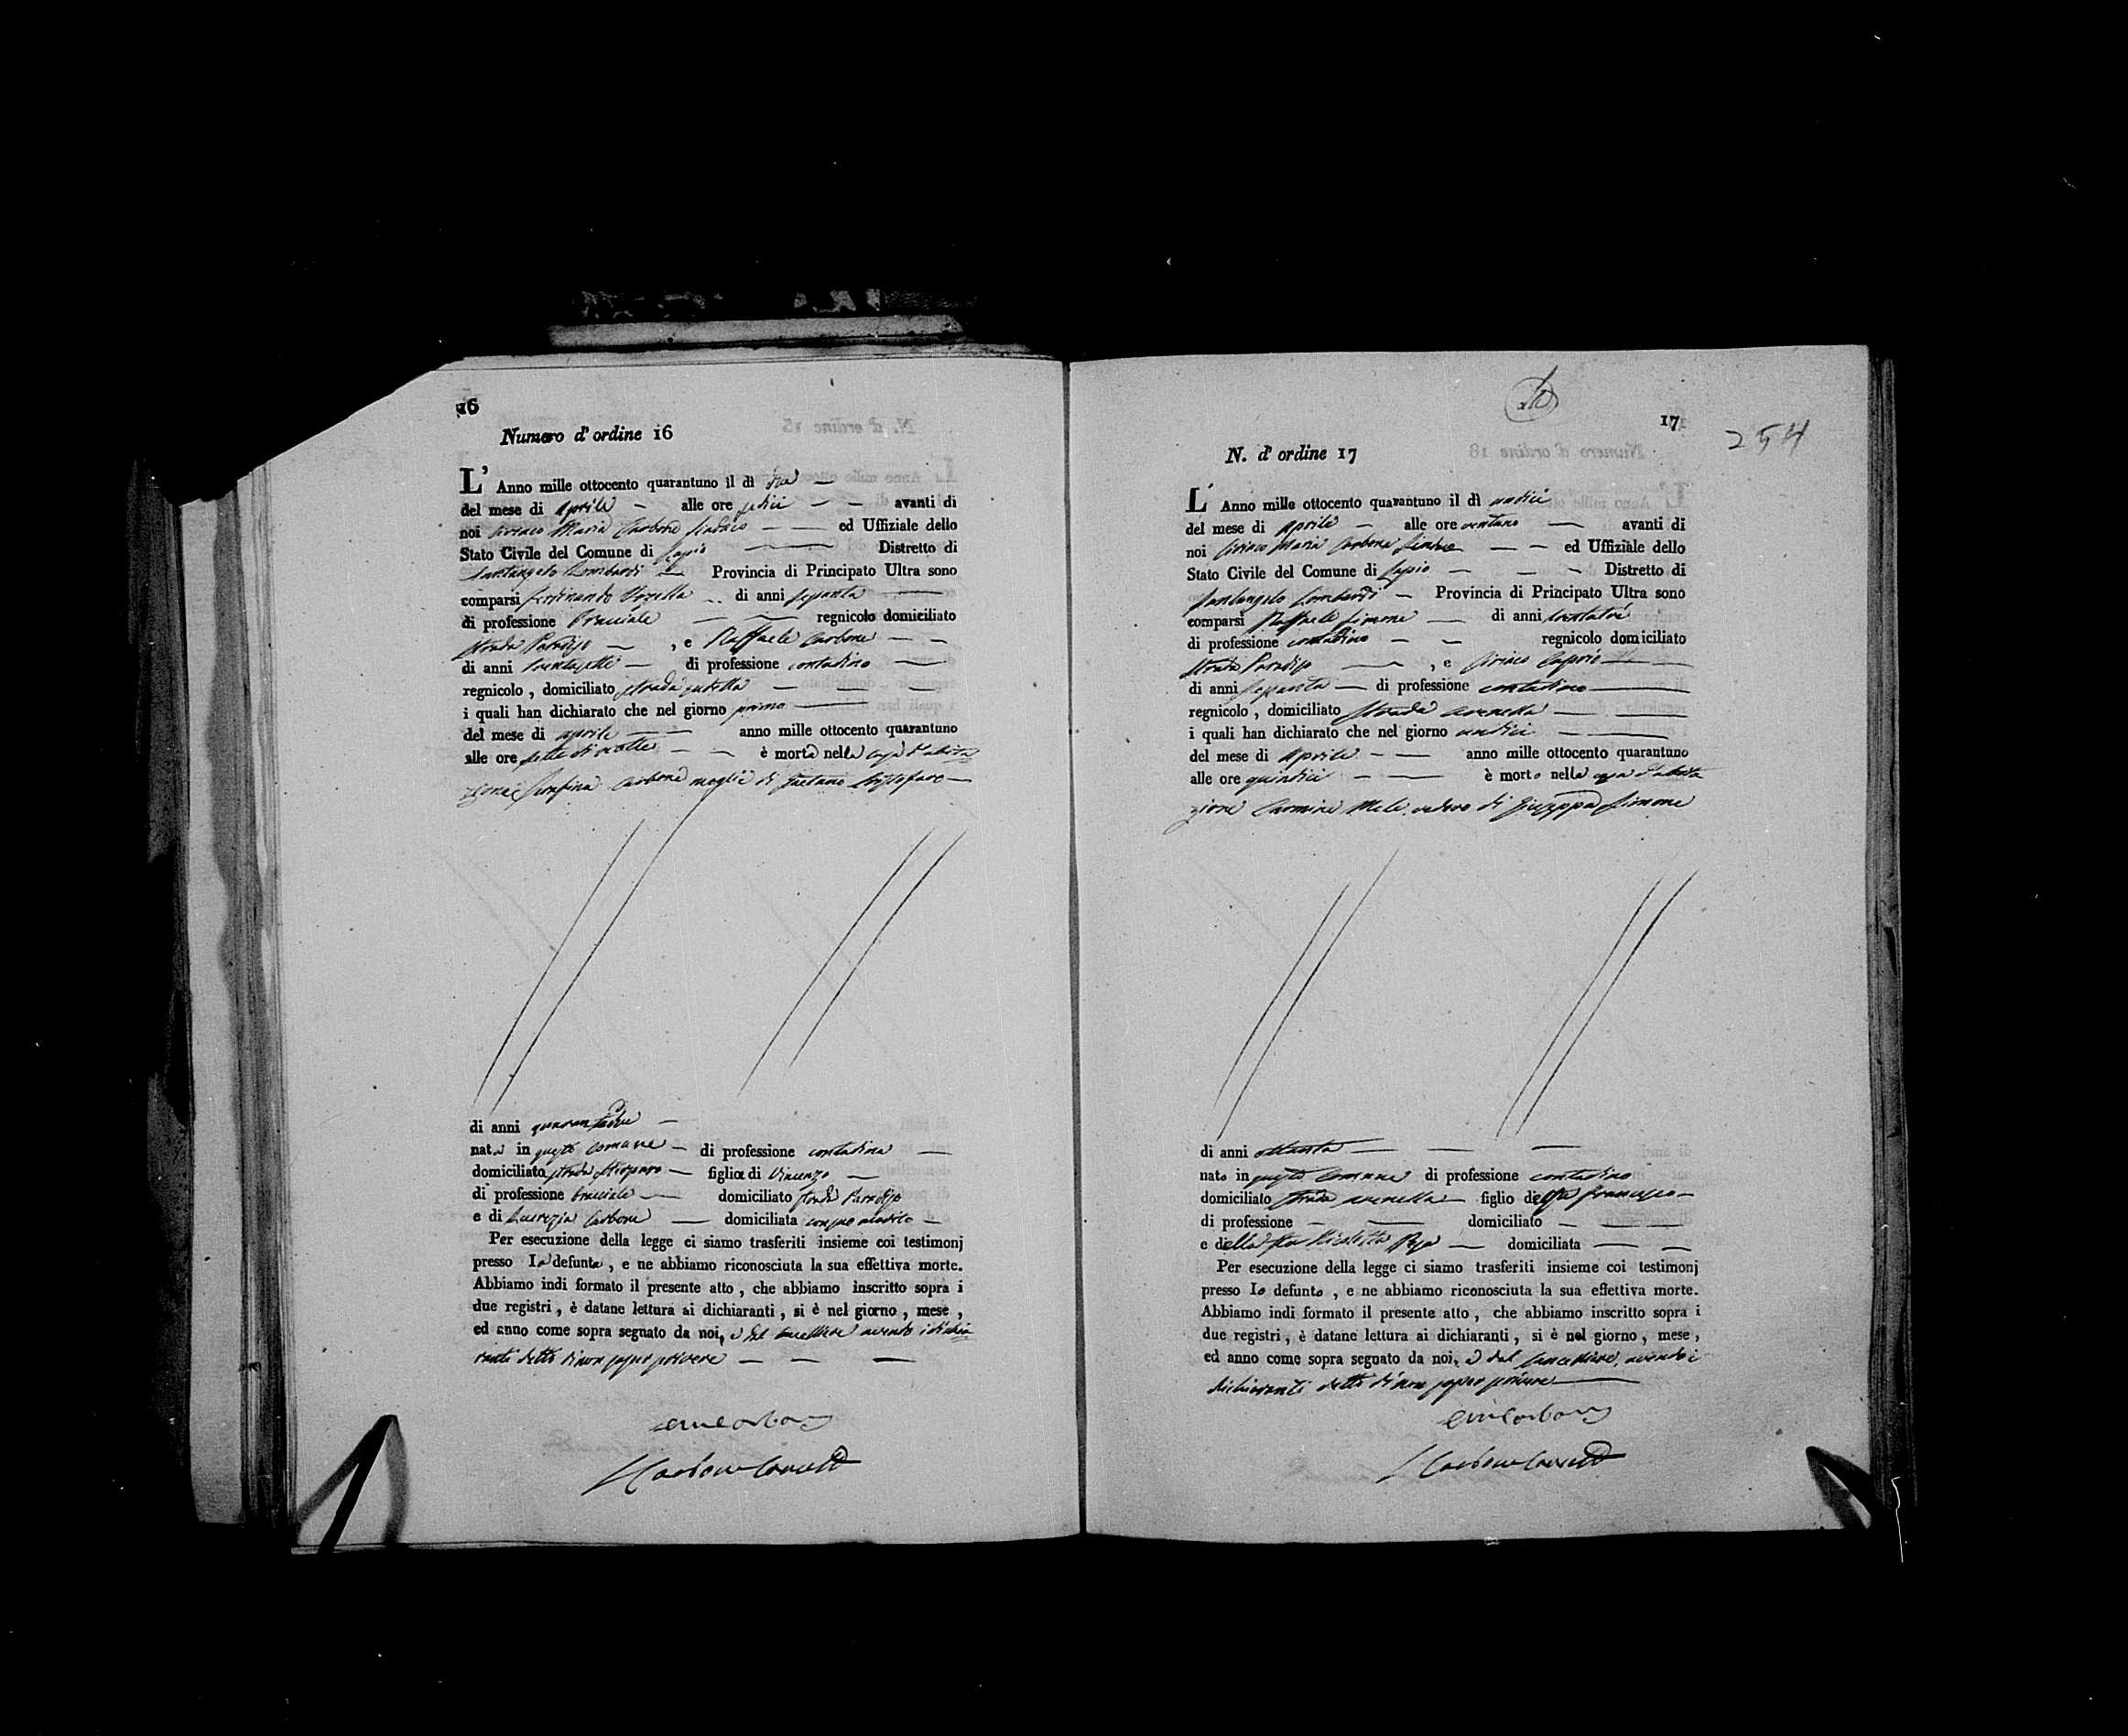 16
Numero d' ordine 16
L' Anno mille ottocento quarantuno il dì due
del mese di aprile alle ore sedici avanti di
noi Ciriaco Maria Carbone Sindaco ed Uffiziale dello
Stato Civile del Comune di Lapio Distretto di
Santangelo Lombardi Provincia di Principato Ultra sono
comparsi Ferdinando di anni sessanta
di professione bracciale regnicolo domiciliato
strada Paradiso , e Raffaele Carbone
di anni trentasette di professione contadino
regnicolo , domiciliato strada
i quali han dichiarato che nel giorno primo
del mese di aprile anno mille ottocento quarantuno
alle ore sette di notte è morta nella casa d'abita
zione Serafina Carbone moglie di Gaetano
di anni
nata in questo Comune di professione contadina
domiciliato strada figlia di Vincenzo
di professione bracciale domiciliato strada Paradiso
e di Lucrezia Carbone domiciliata con suo marito
Per esecuzione della legge ci siamo trasferiti insieme coi testimonj
presso la defunta , e ne abbiamo riconosciuta la sua effettiva morte.
Abbiamo indi formato il presente atto , che abbiamo inscritto sopra i
due registri , è datane lettura ai dichiaranti , si è nel giorno , mese ,
ed anno come sopra segnato da noi, e dal Cancelliere avendo i dichia
ranti detto di non saper scrivere
Carbone
17
254
N. d' ordine 17
L' Anno mille ottocento quarantuno il dì undici
del mese di aprile alle ore ventuno avanti di
noi Ciriaco Maria Carbone Sindaco ed Uffiziale dello
Stato Civile del Comune di Lapio Distretto di
Santangelo Lombardi Provincia di Principato Ultra sono
comparsi Raffaele Simone di anni trentatré
di professione contadino regnicolo domiciliato
strada Paradiso , e Ciriaco Caprio
di anni sessanta di professione contadino
regnicolo , domiciliato strada Arenella
i quali han dichiarato che nel giorno undici
del mese di aprile anno mille ottocento quarantuno
alle ore quindici è morto nella casa d'abita
zione Carmine Mele vedovo di Giuseppa Simone
di anni ottanta
nato in questo Comune di professione contadino
domiciliato strada Arenella figlio del fu Francesco
di professione domiciliato
e della fu Nicoletta domiciliata
Per esecuzione della legge ci siamo trasferiti insieme coi testimonj
presso lo defunto , e ne abbiamo riconosciuta la sua effettiva morte.
Abbiamo indi formato il presente atto , che abbiamo inscritto sopra i
due registri , è datane lettura ai dichiaranti , si è nel giorno , mese ,
ed anno come sopra segnato da noi, e dal Cancelliere, avendo i
dichiaranti detto di non saper scrivere
Carbone